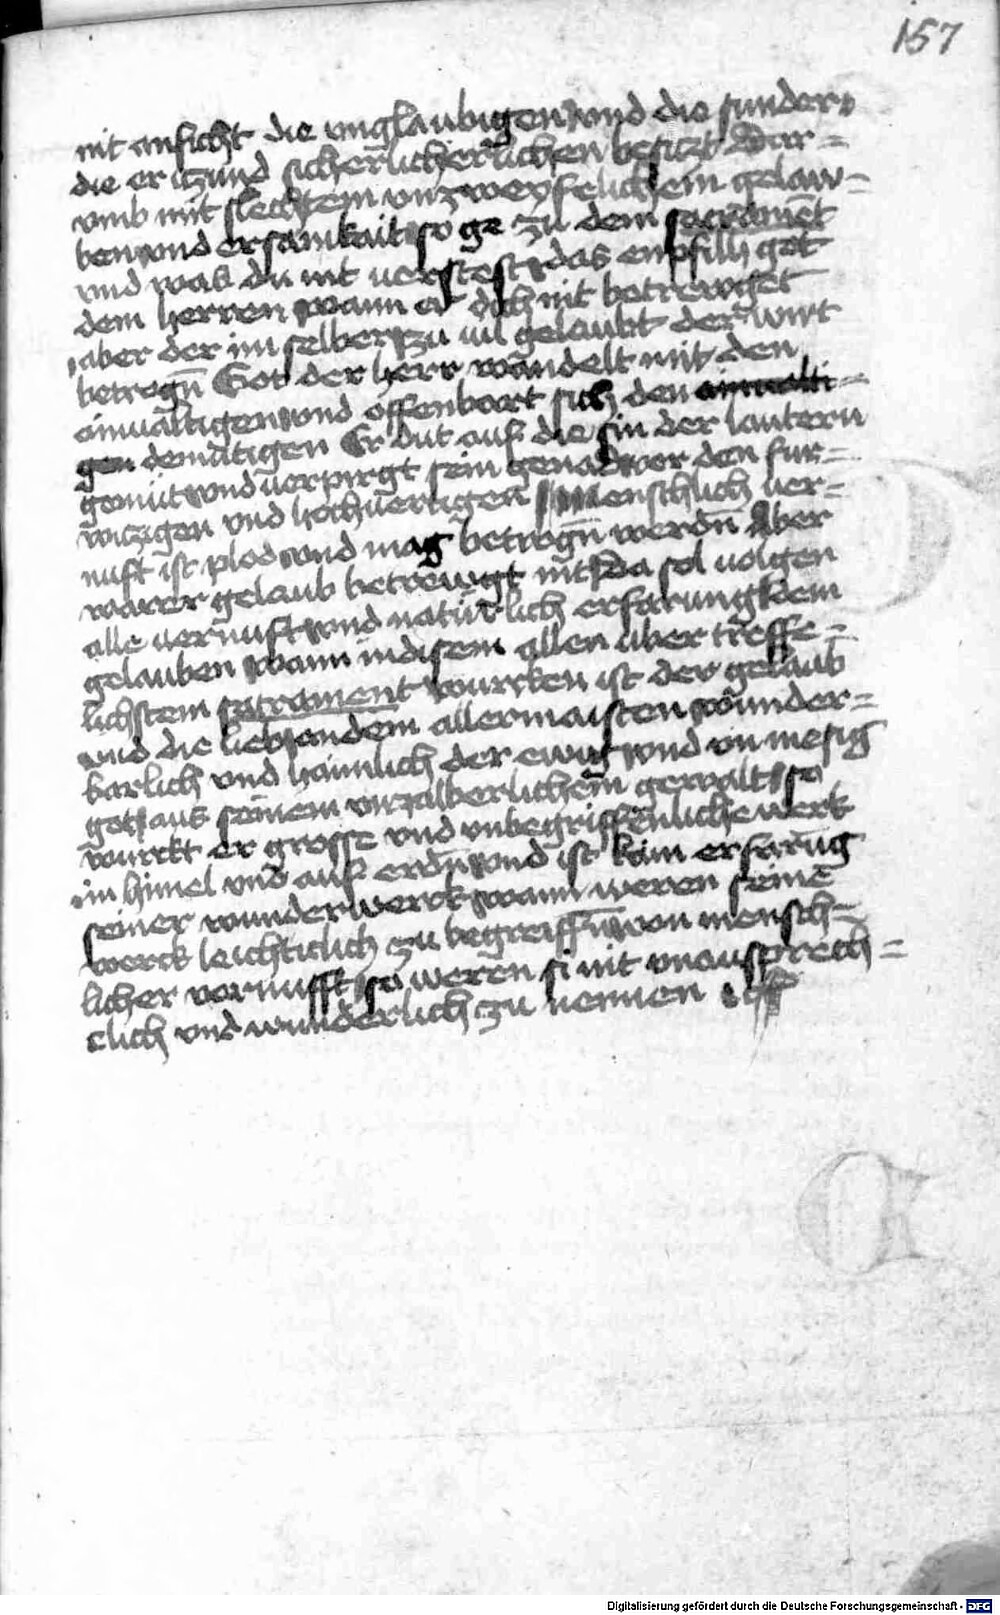 157
nit ansicht die vnglaubigen vnd die sunder
die er iczund sicherlicherlichen besiczt Dar=
vmb mit slechtem vnzweyfelichem gelaw=
ben vnd ersamkait so ge zu dem sacrament
vnd was du nit verstest das enpfilh got
dem herren wann er dich nit betrewget
aber der im selber zu uil gelaubt der wirt
betrogn̄ Got der herr wandelt mit den
ainualtigen vnd offenbart sich den
demutigen Er dut auf die sin der lautern
gemüt vnd verpirgt sein genad vor den fur=
wiczigen vnd hochuertigen Menschlich ver=
nuft ist plod vnd mag betrogn̄ werdn̄ Aber
warer gelaub betrewgt nit da sol uolgen
alle uernuft vnd natürlich erfarung dem
gelauben wann in disem allen uber treffe=
lichstem sacrament wurcken ist der gelaub
vnd die lieb in dem allermaisten wunder=
barlich vnd haimlich der ewig vnd vn mesig
got aus seinem vnzalberlichem gewalt so
wurckt er grosse vnd vnbegriffenliche werk
in himel vnd auf erdn̄ vnd ist kain erfarūg
seiner wunderwerck wann weren seine
werck leichticlich zu begreiffn̄ von mensch=
licher vernufft so weren si nit vnausprech=
clich vnd wunderlich zu nennen
Digitalisierung gefördert durch die Deutsche Forschungsgemeinschaft - DFG